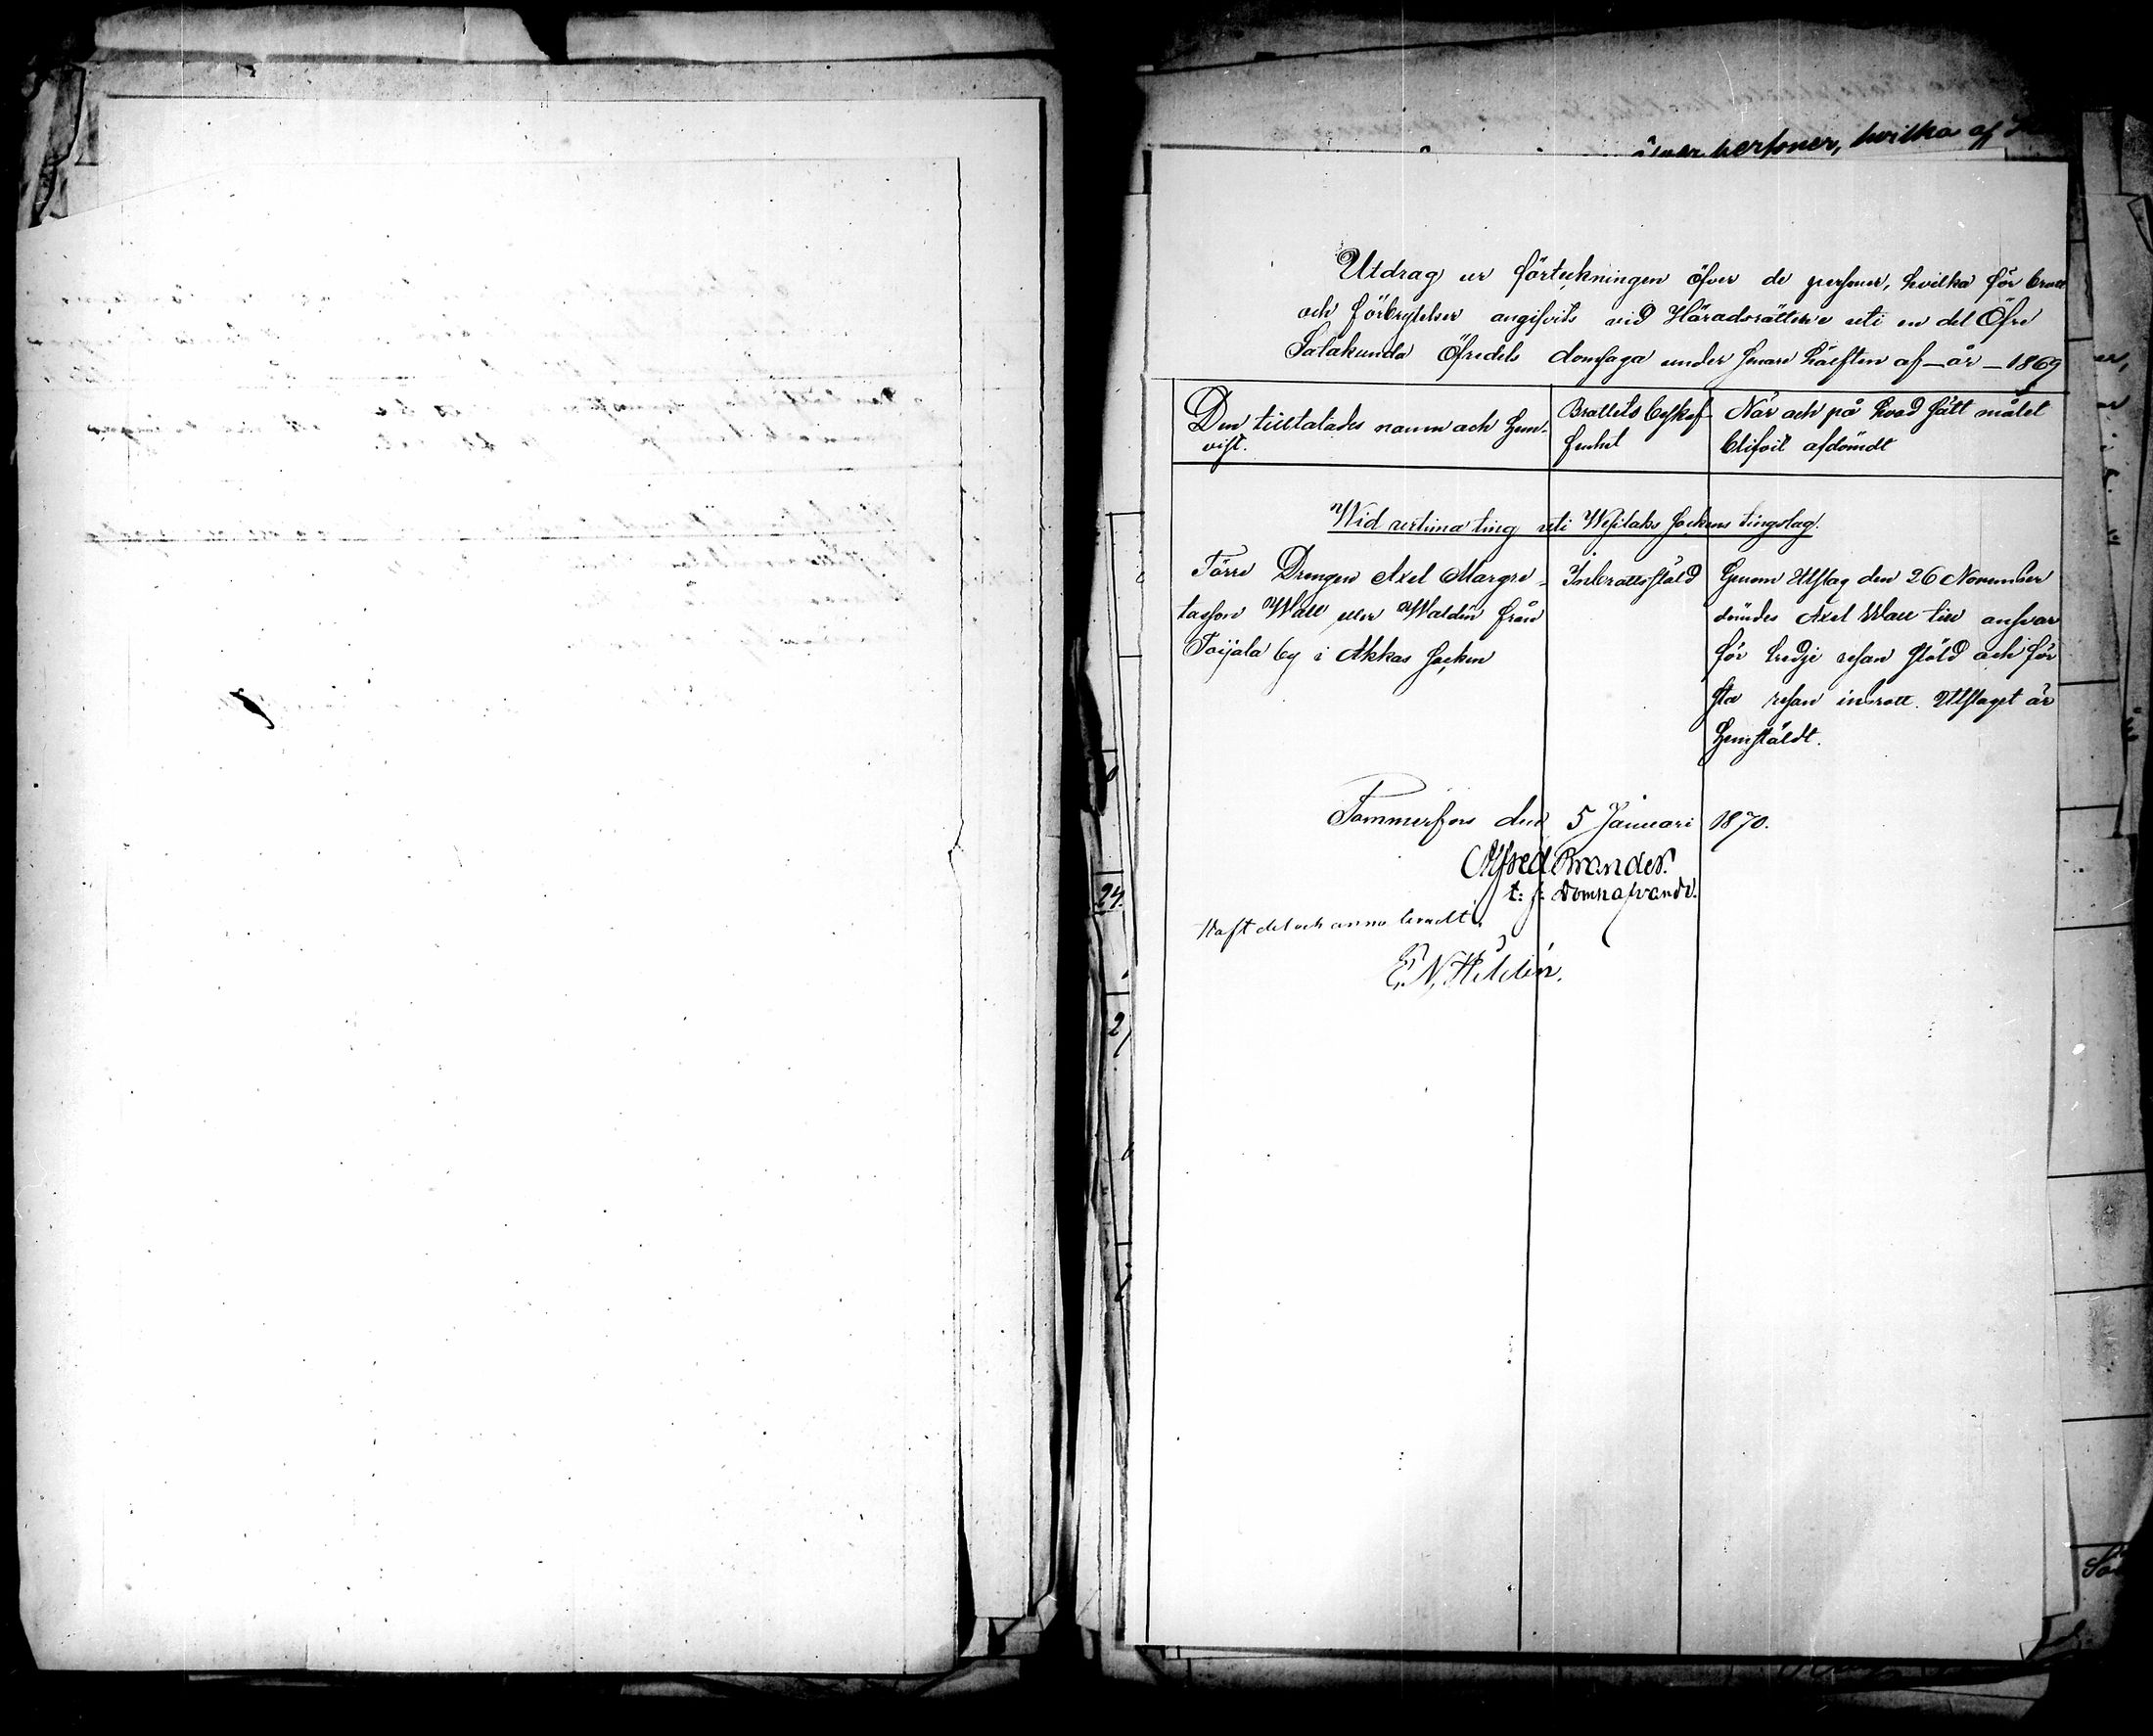 öfver personer, hvilka af
Utdrag ur förteckningen öfver de personer, hvilka för brott
och förbrytelser angifvits vid Häradsrätterne uti en del Öfre
Satakunda Öfredels domsaga under senare hälften af – år – 1869
Den tilltalades namn och hem- Brottets beskaf- När och på hvad sätt målet
vist. fenhet blifvit afdömdt
Wid urtima ting uti Wesilaks Sockens tingslag.
Förre Drengen Axel Margre- Inbrottsstöld Genom Utslag den 26 November
tasson Wall eller Waldén från dömdes Axel Wall till ansvar
Toijala by i Akkas Socken för tredje resan stöld och för
sta resan inbrott. Utslaget är
hemstäldt.
Tammerfors den 5 Januari 1870.
Alfred Brander.
t: f: Domhafvande.
24.
E. N. Hildén.
2